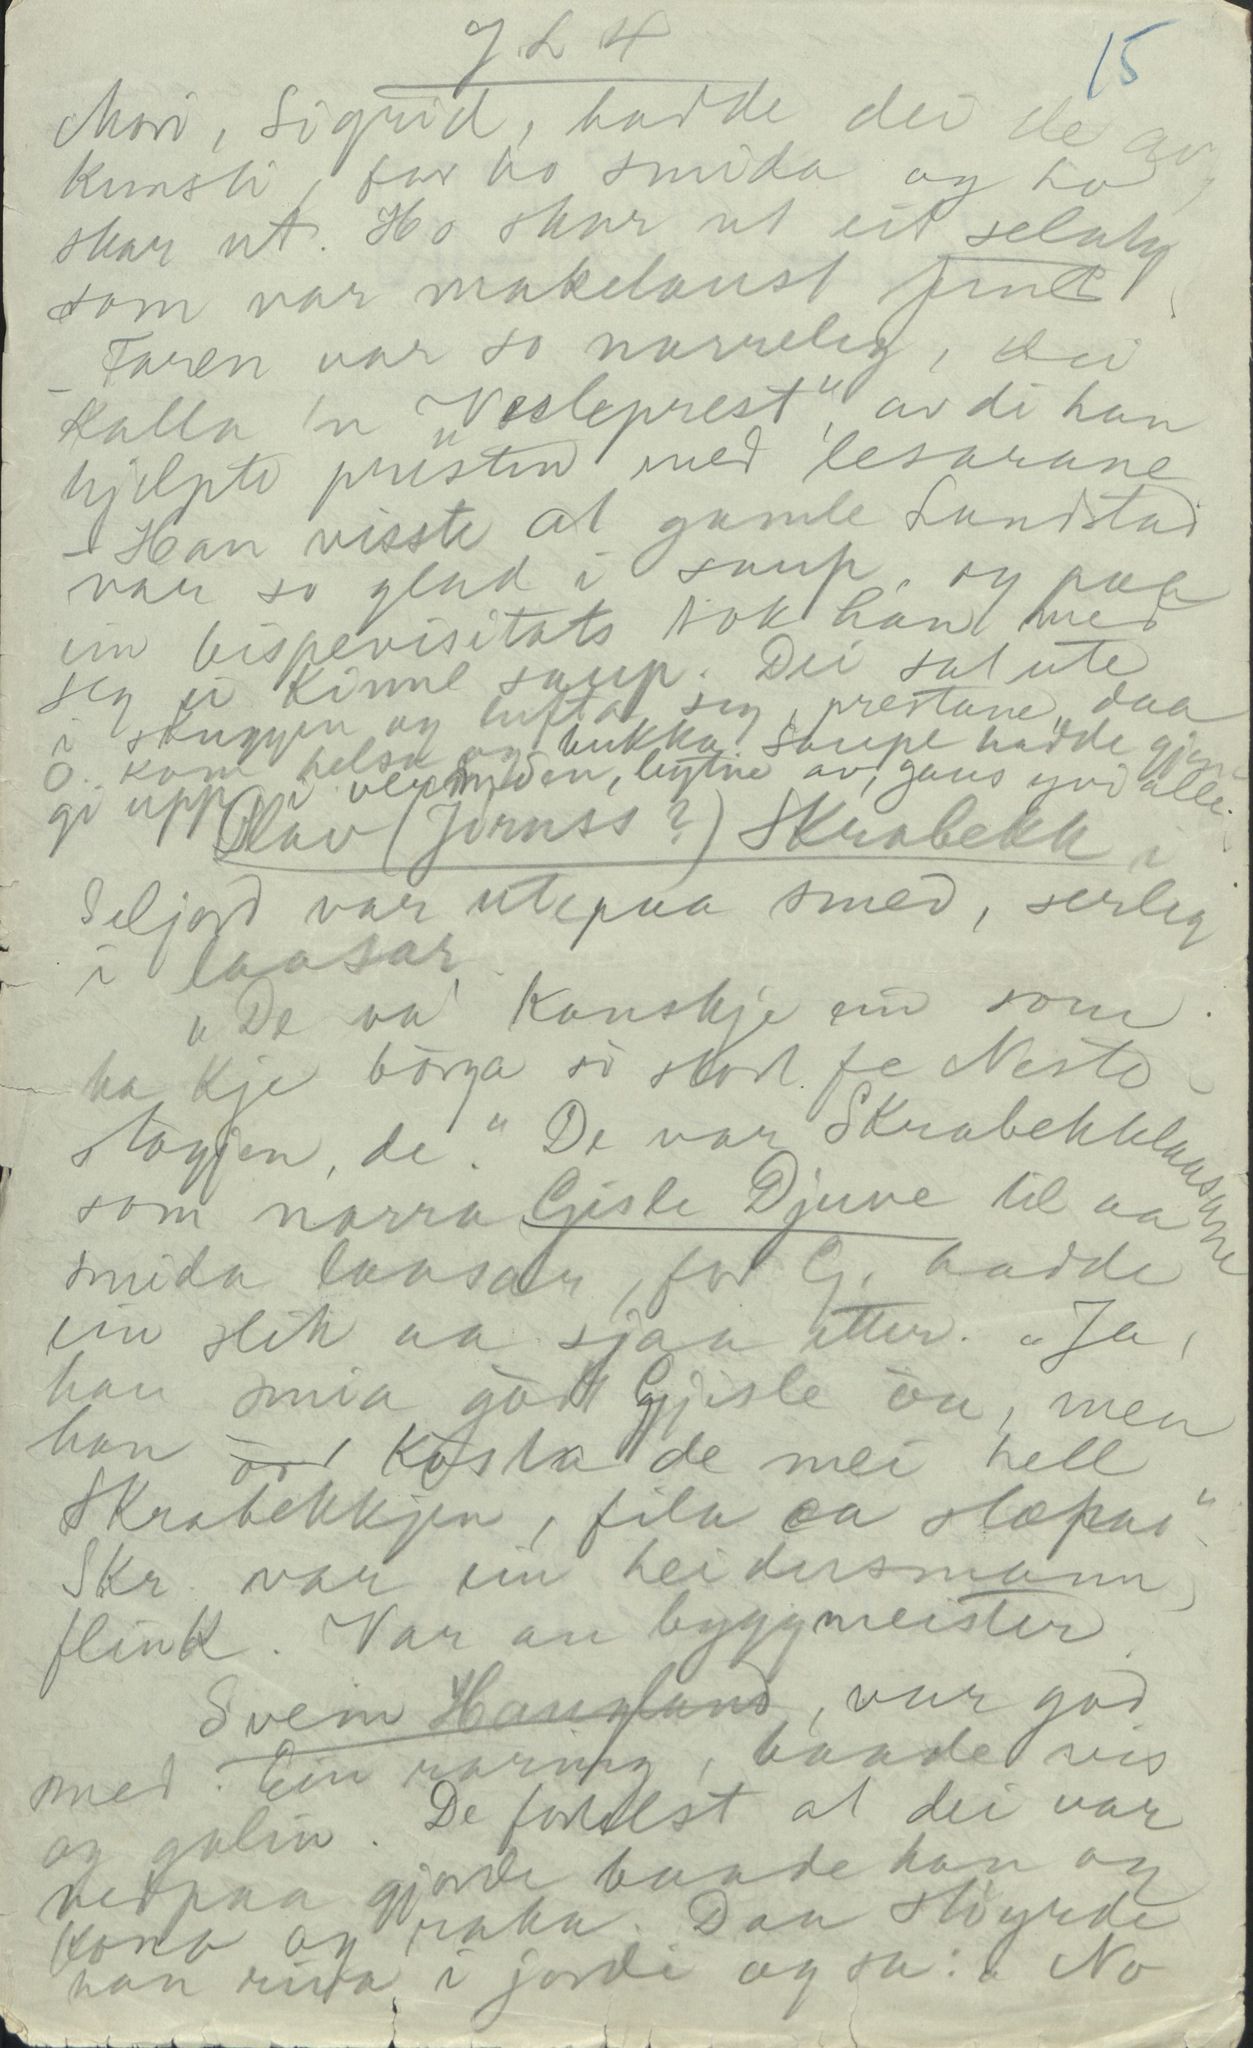 15
Mori, Sigrid, hadde dei de av,
kunsti, for ho smida og ho
skar ut. Ho skar ut eit selaty
som var makelaust fint
- Faren var so narreleg, dei
kalla 'n "Vesleprest", av di han
hjelpte presten med lesarane
- Han visste at gamle Landstad
var so glad i saup, og paa
ein bispevisitats tok han med
seg ei kinne saup. Dei sat ute
i skuggen og lufta seg, prestane, daa
O. kom helsa og bukka. Saupe hadde gjeme
gi upp i veromden, leytne av, gaus yvi alle.
Olav (Jørnss?) Skrabekk i
Seljord var utepaa smed, serleg
i laasar.
"De va' kanskje ein som
ha kje börga so stort fe Nesto
stogjen, de." De var Skrabekklaasane
som narra Gjisle Djuve til aa
smida laasar, for Gj. hadde
ein slik aa sjaa etter. "Ja,
han smia godt Gjisle òu, men
han kosta de mei hell
Skrabekkjen, fila ea slæpao"
Skr. var ein heidersmann,
flink. Var au byggmeister.
Svein Haugland, var god
smed. Ein raring, baade vis
og galin. De fortelst at dei var
nedpaa gjorde baade han og
kona og raka. Daa støyrde
han riva i jordi og sa: "No